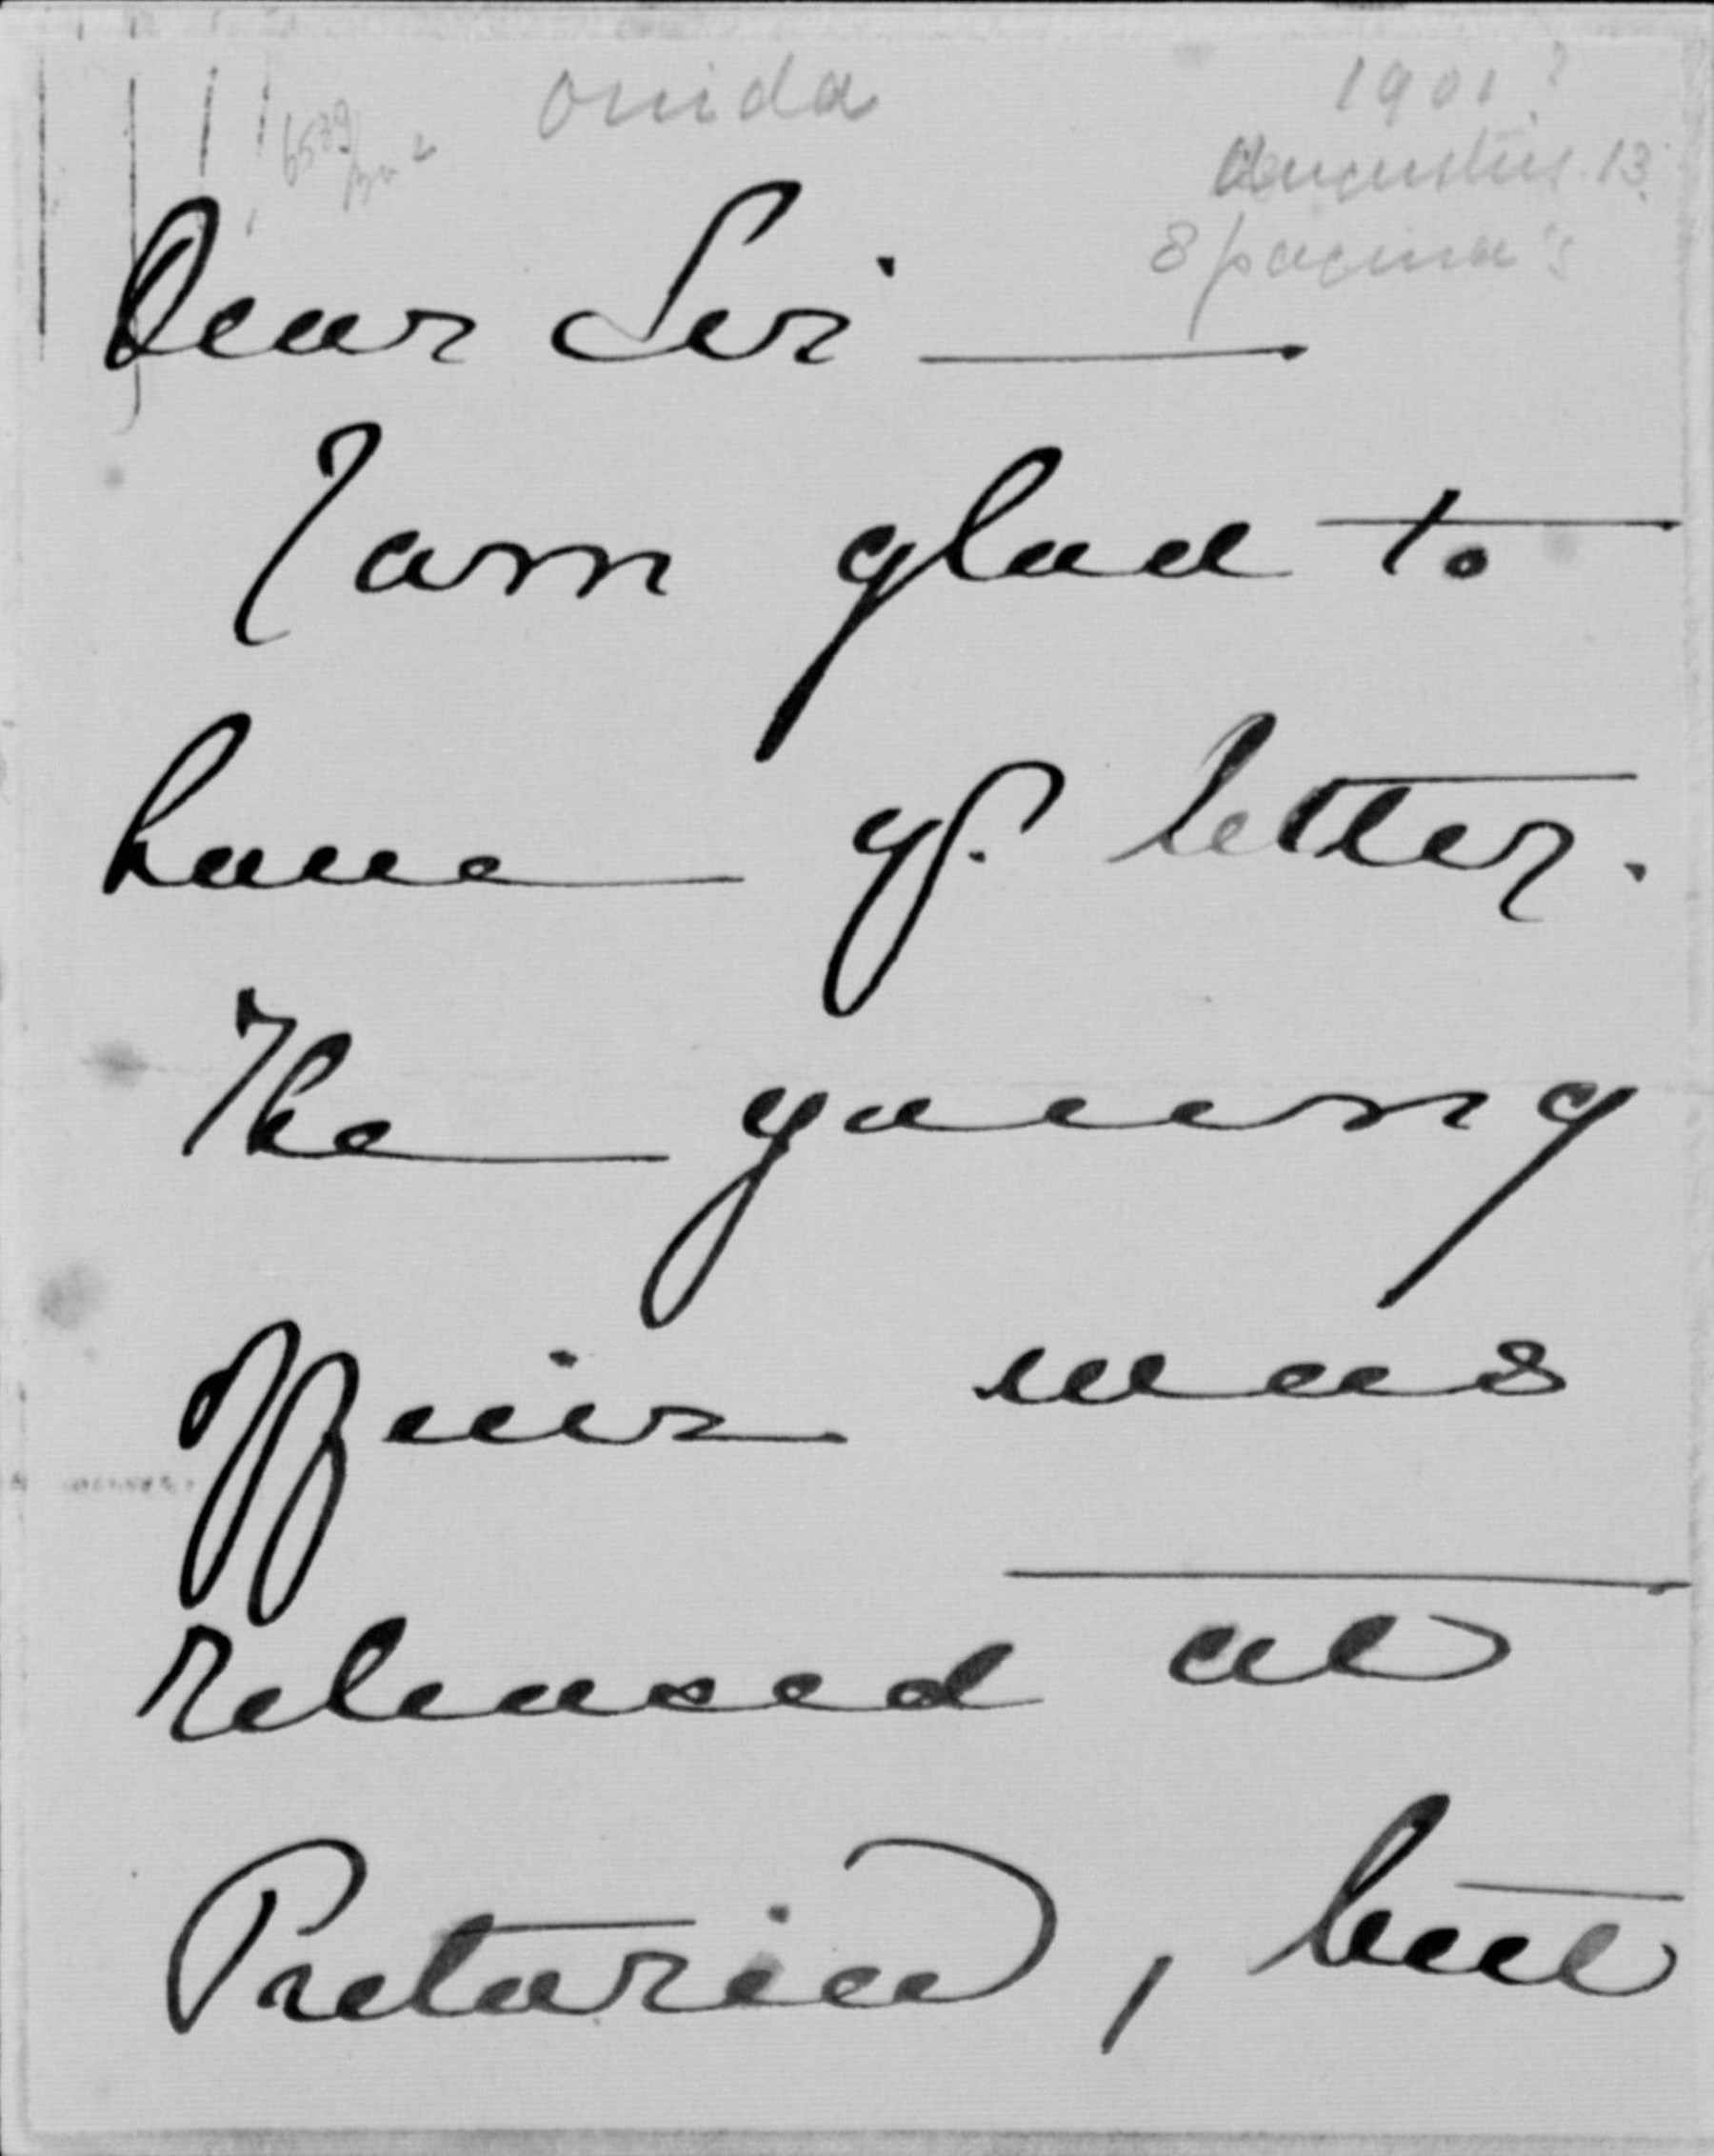 Ouida
1901?
Augustus 13.
8 pagina's
Dear Sir
I am glad to
have yr. letter.
The young
officer was
released at
Pretoria, but